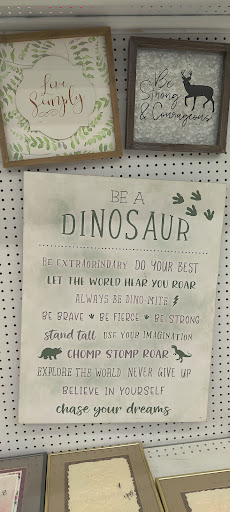 Live
Simply
Be
Strong
& Courageous
BE A
DINOSAUR
BE EXTRAORDINARY DO YOUR BEST
LET THE WORLD HEAR YOU ROAR
ALWAYS BE DINO-MITE
BE BRAVE BE FIERCE BE STRONG
stand tall USE YOUR IMAGINATION
CHOMP STOMP ROAR
EXPLORE THE WORLD NEVER GIVE UP
BELIEVE IN YOURSELF
chase your dreams